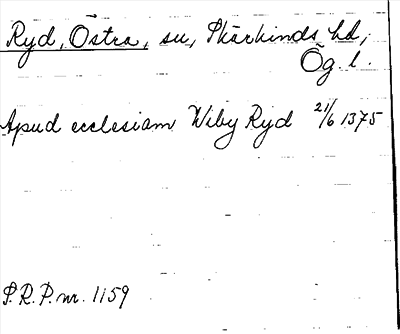 Ryd, Östra, su, Skärkinds hd,
Ög. l.
Apud ecclesiam Wiby Ryd 21/6 1375
S.R.P. nr. 1159